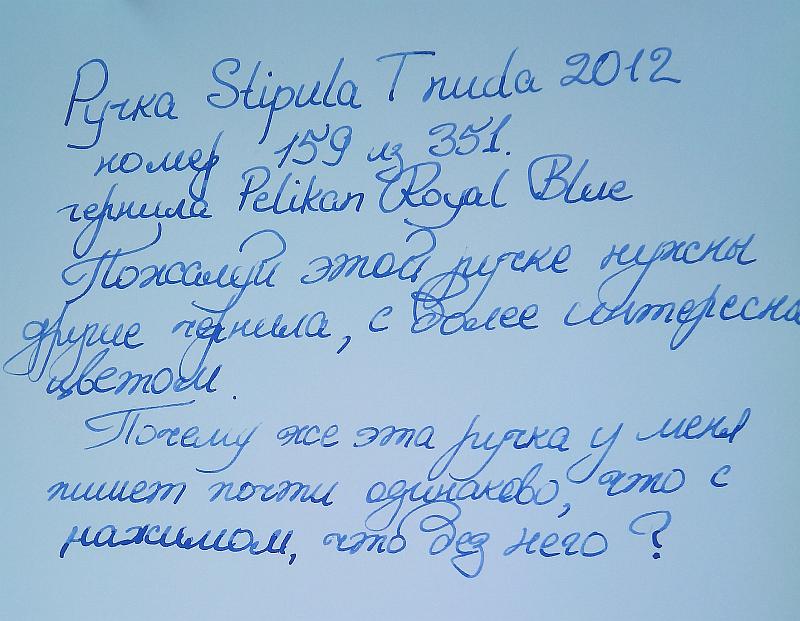 Ручка Stipula T nuda 2012
номер 159 из 351.
чернила Pelikan Royal Blue
Пожалуй этой ручке нужны
другие чернила, с более интересна
цветом.
Почему же эта ручка у меня
пишет почти одинаково, что с
нажимом, что без него?